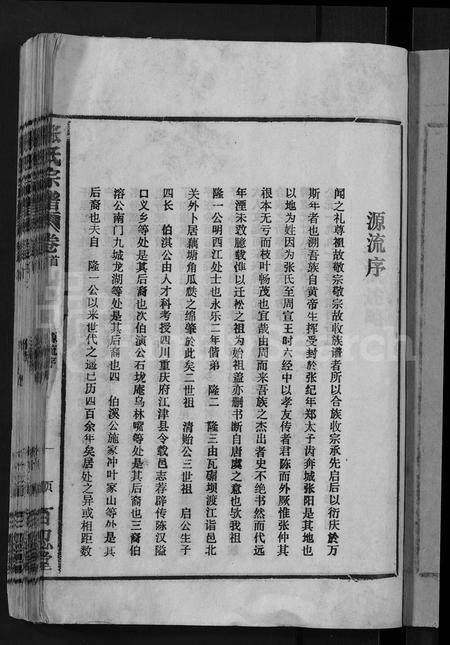 源流序
闻之礼尊祖故敬宗敬宗故收族谱者所以合族收宗承先启后以衍庆於万
斯年者也溯吾族自黄帝生挥受封於张纪年郑太子齿奔城张阳是其地也
以地为姓因为张氏至周宣王时六经中以孝友传者君陈而外厥惟张仲其
很本无亏而枝叶畅茂也宜哉由周而来吾族之杰出者史不绝书然而代远
年湮未敢臆载惟以迁松之祖为始祖盖亦删书断自唐虞之意也欤我祖
隆一公明西江处士也永乐二年偕弟 隆二 隆三由瓦砌坝渡江诣邑北
关外卜居藕塘角瓜瓞之绵肇於此矣二世祖 清贻公三世祖 启公生子
四长 伯淇公由人才科考授四川重庆府江津县令载邑志荐辟传陈汉隘
口义乡等处是其后裔也次伯演公石垅庵乌林嘴等处是其后裔也三伯
溶公南门九城龙湖等处是其后裔也四 伯溪公施家冲叶家山等处是其
后裔也夫自 隆一公以来世代之递已历四百余年矣居处之异或相距数
氏宗谱 卷首
源流序
一
百忍堂